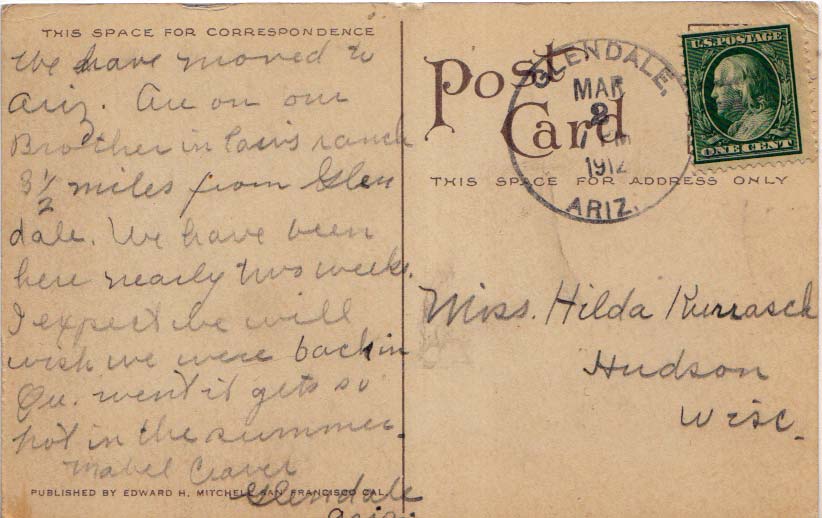 THIS SPACE FOR CORRESPONDENCE
We have moved to
Ariz. Are on our
Brother in laws ranch
3 1/2 miles from Glen
dale. We have been
here nearly two weeks.
I expect we will
wish we were back in
when it gets so
hot in the summer.
Mabel
Glendale
Ariz.
PUBLISHED BY EDWARD H. MITCHELL SAN FRANCISCO CAL.
Post
Card
THIS SPACE FOR ADDRESS ONLY
GLENDALE,
MAR
2
PM
1912
ARIZ.
U.S. POSTAGE
ONE CENT
Miss. Hilda Kurrasch
Hudson
Wisc.